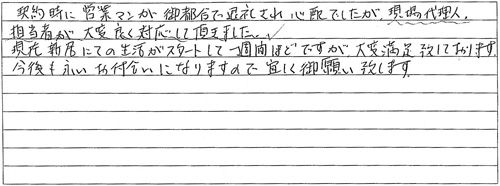 契約時に営業マンが御都合で退社され心配でしたが、現場代理人、
担当者が大変良く対応して頂きました。
現在新居にての生活がスタートして一週間ほどですが大変満足致しております。
今後も永いお付合いになりますので宜しく御願い致します。